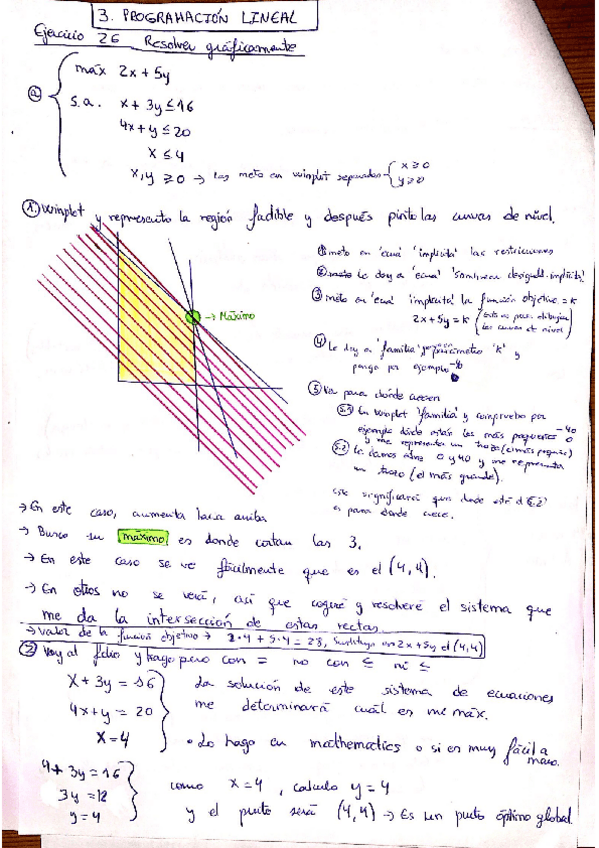 3. PROGRAMACIÓN LINEAL
Ejercicio 26 Resolver gráficamente
a) máx 2x + 5y
s.a. x + 3y ≤ 16
4x + y ≤ 20
x ≤ 4
x, y ≥ 0 → las meto en winplot separadas { x ≥ 0
y ≥ 0
1. Winplot y represento la región factible y después pinto las curvas de nivel.
1 meto en 'ecua' 'implícita' las restricciones
2 le doy a 'ecua' 'sombrear desigualdad. implícita'
3 meto en 'ecua' implícita! la función objetivo = k
2x + 5y = k
las curvas de nivel
→ Máximo
4 Le doy a 'familia' parámetro 'k' y
pongo por ejemplo -40
5 Veo para dónde crecen
5.1 En winplot 'familia' y compruebo por -40
ejemplo dónde están las más pequeñas 0
y me representa un trozo (el más pequeño)
5.2 Le damos entre 0 y 40 y me representa
un trozo (el más grande).
Esto significará que donde esté el 5.2
es para donde crece.
→ En este caso, aumenta hacia arriba
→ Busco su máximo es donde cortan las 3.
→ En este caso se ve fácilmente que es el (4,4).
→ En otros no se verá, así que cogeré y resolveré el sistema que
me da la intersección de estas rectas
→ Valor de la función objetivo → 2·4 + 5·4 = 28, sustituyo en 2x + 5y el (4,4)
2 Voy al folio y hago pero con = no con ≤ ni ≤
x + 3y = 16
4x + y = 20
x = 4
La solución de este sistema de ecuaciones
me determinará cuál es mi máx.
• Lo hago en mathematics o si es muy fácil a
mano.
4 + 3y = 16
3y = 12
y = 4
como x = 4, calculo y = 4
y el punto será (4,4) → Es un punto óptimo global.